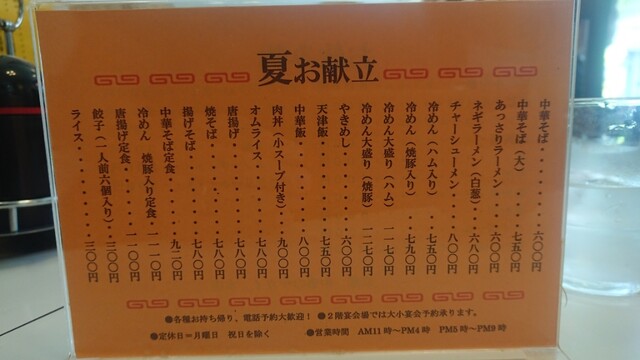 夏お献立
中華そば・・・・・・六〇〇円
中華そば（大）・・・七五〇円
あっさりラーメン・・六〇〇円
ネギラーメン（白葱）・六八〇円
チャーシューメン・・・八〇〇円
冷めん（ハム入り）・・七五〇円
冷めん（焼豚入り）・・七九〇円
冷めん大盛り（ハム）・一一七〇円
冷めん大盛り（焼豚）
やきめし・・・・・・六〇〇円
天津飯・・・・・・・七五〇円
中華飯・・・・・・・八〇〇円
肉丼（小スープ付き）・九〇〇円
オムライス・・・・・七八〇円
唐揚げ・・・・・・・七八〇円
焼そば・・・・・・・七八〇円
揚げそば・・・・・・七八〇円
中華そば定食・・・・九二〇円
冷めん 焼豚入り定食・一一二〇円
唐揚げ定食・・・・・一一〇〇円
餃子（一人前六個入り）・三〇〇円
ライス・・・・・・・三〇〇円
●各種お持ち帰り、電話予約大歓迎！ ●２階宴会場では大小宴会予約承ります。
●定休日＝月曜日 祝日を除く ●営業時間 AM11時〜PM4時 PM5時〜PM9時